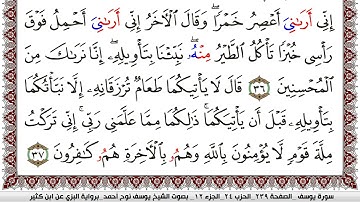 إِنِّيَ أَرَىٰنِيَ أَعْصِرُ خَمْرًا ۖ وَقَالَ ٱلْأَخَرُ إِنِّيَ أَرَىٰنِيَ أَحْمِلُ فَوْقَ
رَأْسِي خُبْزًا تَأْكُلُ ٱلطَّيْرُ مِنْهُۥ ۖ نَبِّئْنَا بِتَأْوِيلِهِۦٓ ۖ إِنَّا نَرَىٰكَ مِنَ
ٱلْمُحْسِنِينَ ٣٦ قَالَ لَا يَأْتِيكُمَا طَعَامٌ تُرْزَقَانِهِۦٓ إِلَّا نَبَّأْتُكُمَا
بِتَأْوِيلِهِۦ قَبْلَ أَن يَأْتِيَكُمَا ۚ ذَٰلِكُمَا مِمَّا عَلَّمَنِي رَبِّيَ ۚ إِنِّي تَرَكْتُ
مِلَّةَ قَوْمٍ لَا يُؤْمِنُونَ بِٱللَّهِ وَهُمُۥ بِٱلْأَخِرَةِ هُمُۥ كَٰفِرُونَ ٣٧
سورة يوسف _ الصفحة ٢٣٩ _ الحزب ٢٤ _ الجزء ١٢ _ بصوت الشيخ يوسف نوح أحمد_ برواية البزي عن ابن كثير